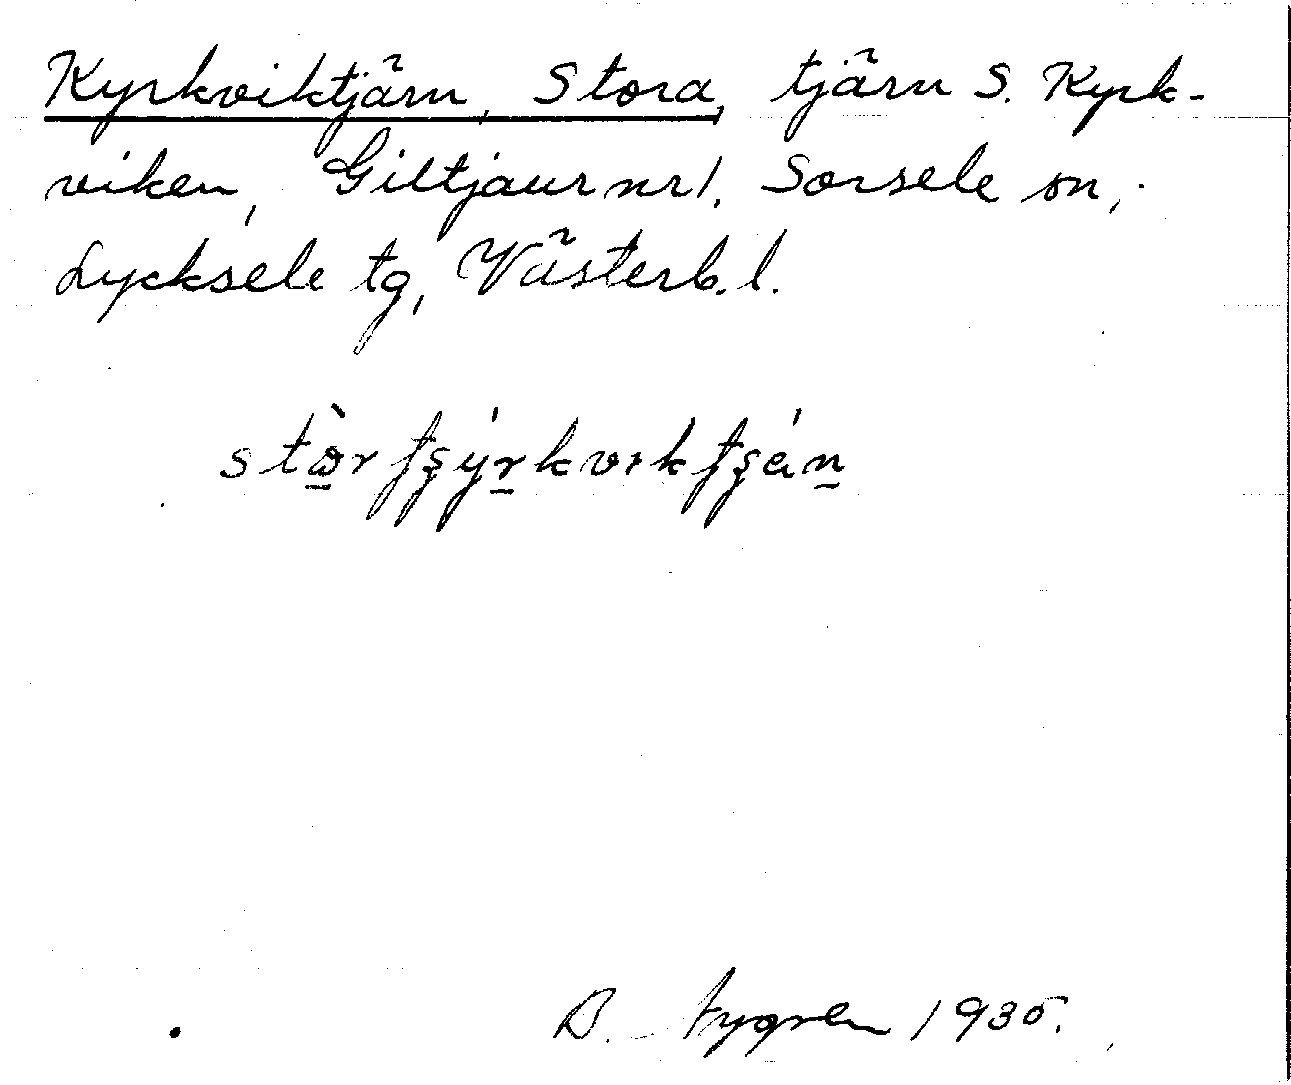 Kyrkviktjärn, Stora, tjärn S. Kyrk-
viken, Giltjaur nr 1. Sorsele sn,
Lycksele tg, Västerb. l.
B. Nygren 1935.